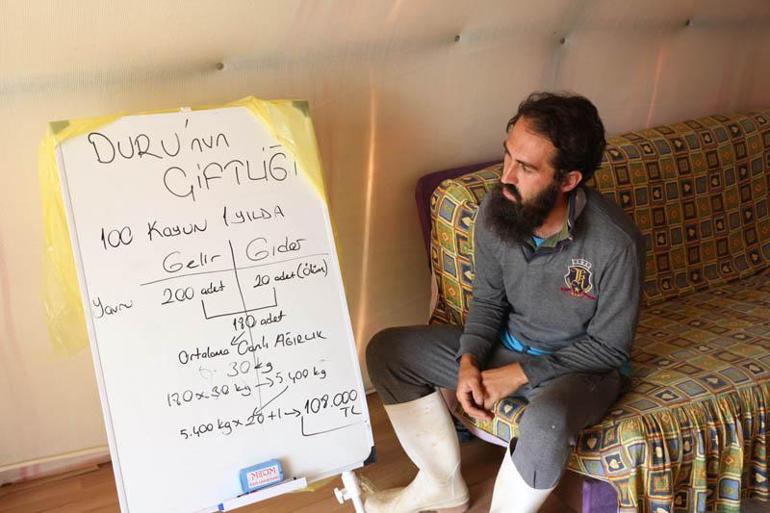 DURU'nun
ÇİFTLİĞİ
100 Koyun 1 YILDA
Gelir Gider
Yavru 200 adet 20 adet (Ölüm)
180 adet
Ortalama Canlı AĞIRLIK
30 kg
180 x 30 kg → 5.400 kg
5.400 kg x 20 + 1 → 108.000
TL